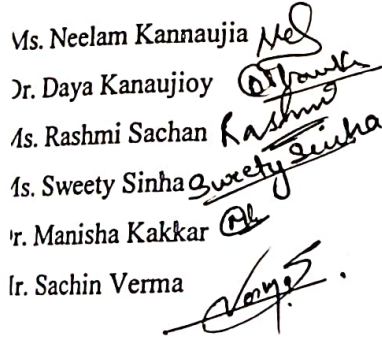 Ms. Neelam Kannaujia
Dr. Daya Kanaujioy
Ms. Rashmi Sachan Rashmi
Ms. Sweety Sinha Sweety Sinha
Dr. Manisha Kakkar
Mr. Sachin Verma Verma S.